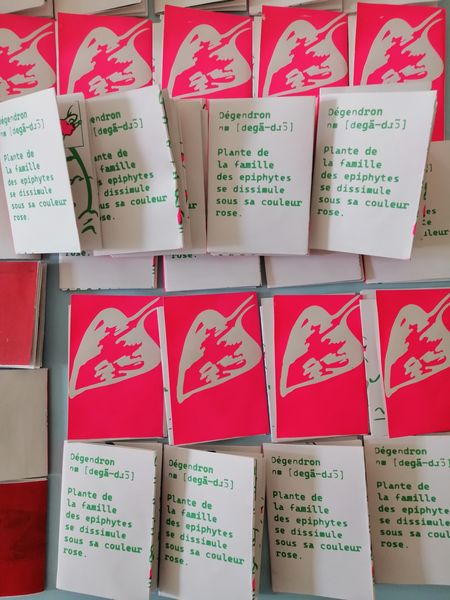 Dégendron
[degã-dɹɔ̃]
Plante de
la famille
des epiphytes
se dissimule
sous sa couleur
rose.
Dégendron
nm [degã-dɹɔ̃]
Plante de
la famille
des epiphytes
se dissimule
sous sa couleur
rose.
Dégendron
nm [degã-dɹɔ̃]
Plante de
la famille
des epiphytes
se dissimule
sous sa couleur
rose.
Dégendron
nm [degã-dɹɔ̃]
Plante de
la famille
des epiphytes
se dissimule
sous sa couleur
rose.
Dégendron
nm [degã-dɹɔ̃]
Plante de
la famille
des epiphytes
se dissimule
sous sa couleur
rose.
Dégendron
nm [degã-dɹɔ̃]
Plante de
la famille
des epiphytes
se dissimule
sous sa couleur
rose.
Dégendron
nm [degã-dɹɔ̃]
Plante de
la famille
des epiphytes
se dissimule
sous sa couleur
rose.
Dégendron
nm [degã-dɹɔ̃]
Plante de
la famille
des epiphytes
se dissimule
sous sa couleur
rose.